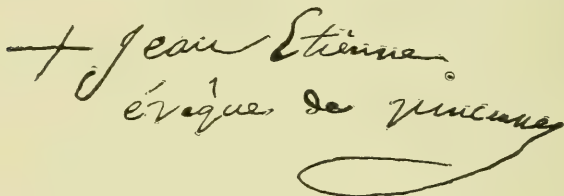 + Jean Etienne
évêque de Vincennes